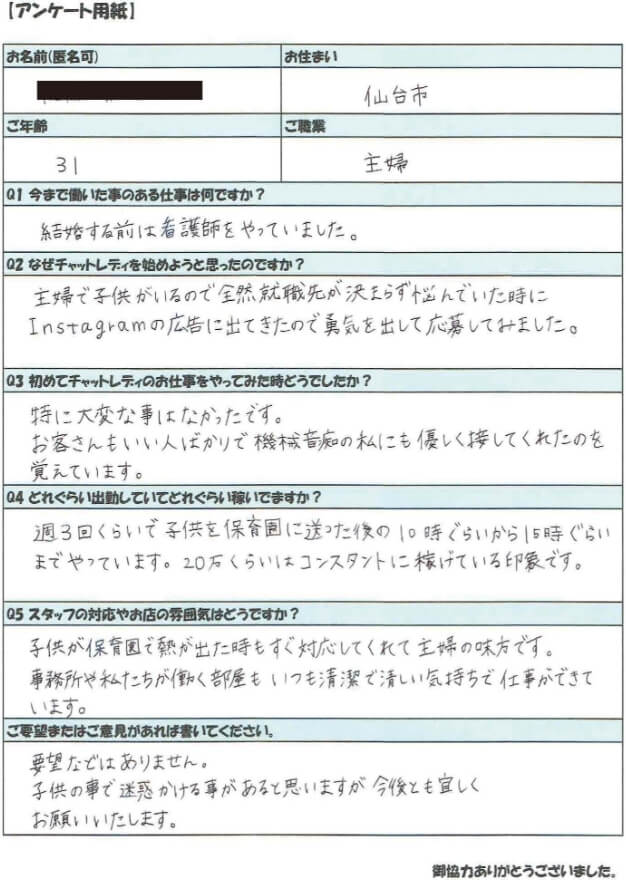 【アンケート用紙】
お名前(匿名可) お住まい
仙台市
ご年齢 ご職業
31 主婦
Q1 今まで働いた事のある仕事は何ですか？
結婚する前は看護師をやっていました。
Q2 なぜチャットレディを始めようと思ったのですか？
主婦で子供がいるので全然就職先が決まらず悩んでいた時に
Instagramの広告に出てきたので勇気を出して応募してみました。
Q3 初めてチャットレディのお仕事をやってみた時どうでしたか？
特に大変な事はなかったです。
お客さんもいい人ばかりで機械音痴の私にも優しく接してくれたのを
覚えています。
Q4 どれぐらい出勤していてどれぐらい稼いでますか？
週3回くらいで子供を保育園に送った後の10時ぐらいから15時ぐらい
までやっています。20万くらいはコンスタントに稼げている印象です。
Q5 スタッフの対応やお店の雰囲気はどうですか？
子供が保育園で熱が出た時もすぐ対応してくれて主婦の味方です。
事務所や私たちが働く部屋もいつも清潔で清しい気持ちで仕事ができて
います。
ご要望またはご意見があれば書いてください。
要望などはありません。
子供の事で迷惑かける事があると思いますが今後とも宜しく
お願いいたします。
御協力ありがとうございました。